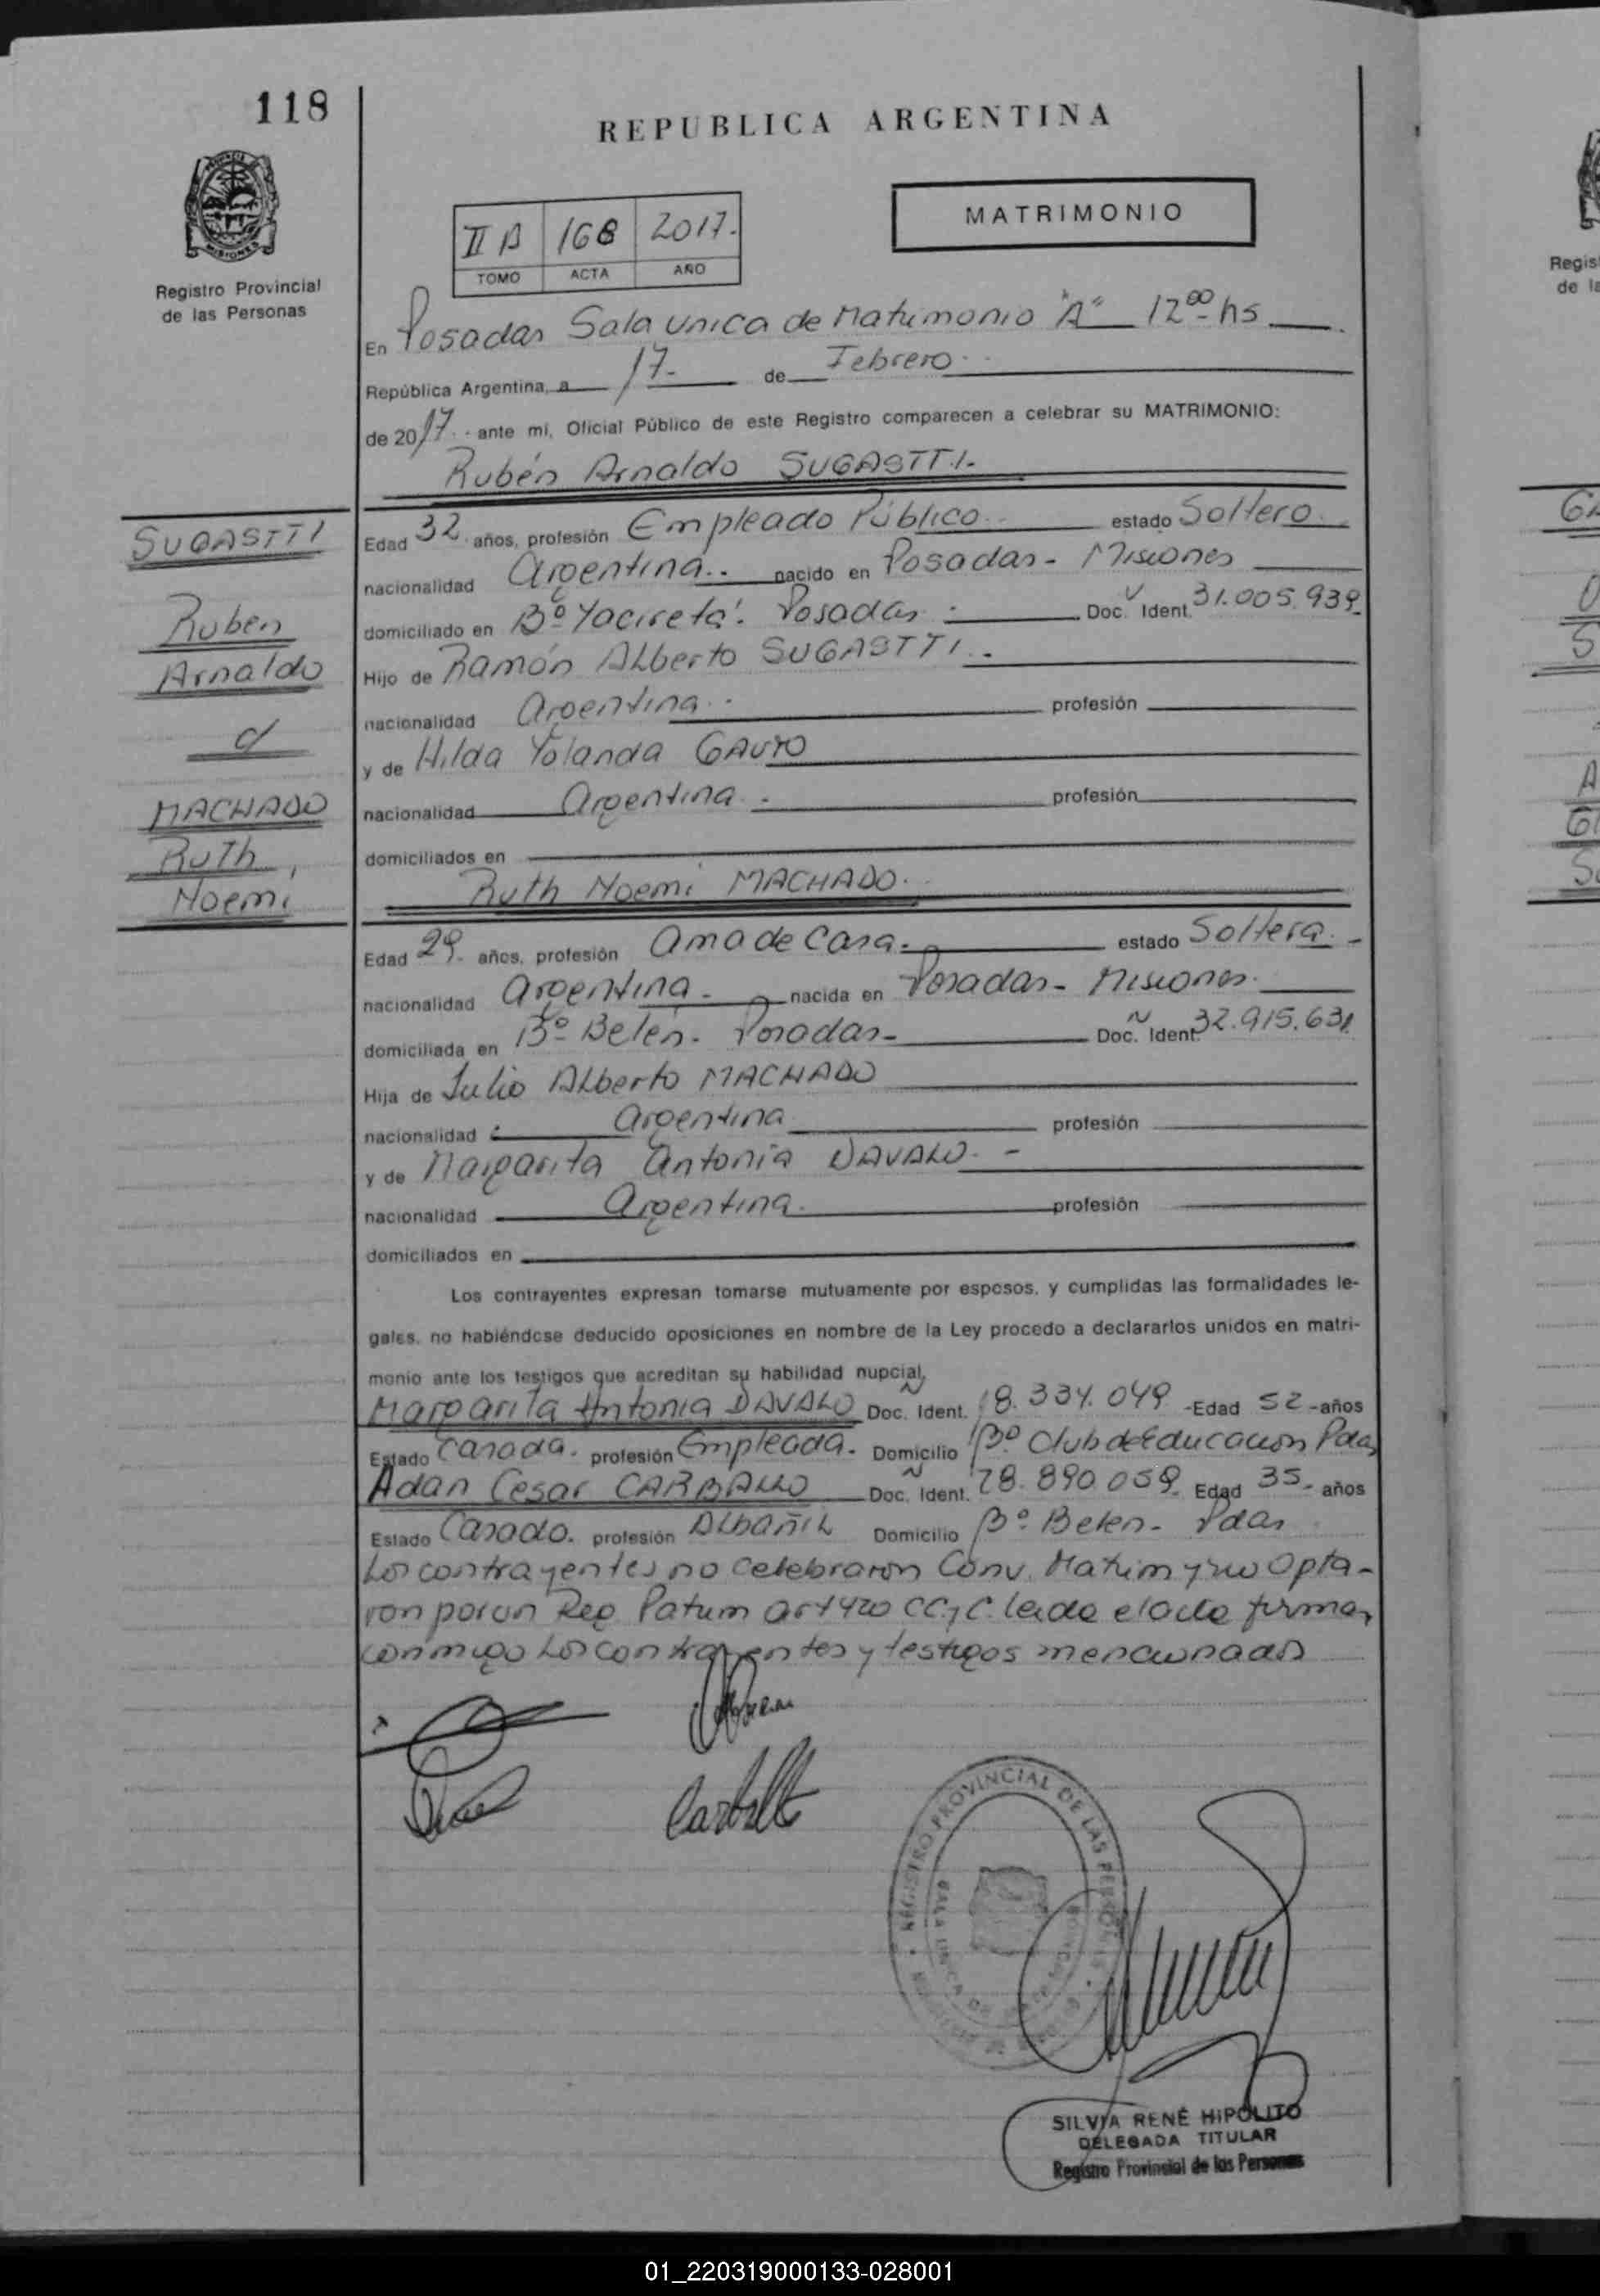 118
REPUBLICA ARGENTINA
MATRIMONIO
II A 168 2017.
TOMO ACTA AÑO
Registro Provincial
de las Personas
En Posadas Sala unica de Matrimonio "A" 12 00 hs
República Argentina, a 17 de Febrero
de 2017 ante mi, Oficial Público de este Registro comparecen a celebrar su MATRIMONIO:
Rubén Arnaldo SUGASTTI.
SUGASTTI
Ruben
Arnaldo
c/
MACHADO
Ruth
Noemi
Edad 32 años, profesión Empleado Público estado Soltero
nacionalidad Argentina nacido en Posadas - Misiones
domiciliado en Bº Yacireta. Posadas Doc. Ident. 31.005.939
Hijo de Ramón Alberto SUGASTTI
nacionalidad Argentina profesión
y de Hilda Yolanda GAUTO
nacionalidad Argentina profesión
domiciliados en
Ruth Noemi MACHADO.
Edad 29 años, profesión Ama de Casa. estado Soltera
nacionalidad Argentina nacida en Posadas - Misiones
domiciliada en Bº Belén. Posadas Doc. Ident. 32.915.631
Hija de Julio Alberto MACHADO
nacionalidad Argentina profesión
y de Margarita Antonia DAVALO
nacionalidad Argentina. profesión
domiciliados en
Los contrayentes expresan tomarse mutuamente por esposos, y cumplidas las formalidades le-
gales, no habiéndose deducido oposiciones en nombre de la Ley procedo a declararlos unidos en matri-
monio ante los testigos que acreditan su habilidad nupcial,
Margarita Antonia DAVALO Doc. Ident. 18.334.049 -Edad 52 -años
Estado Casada. profesión Empleada. Domicilio Bº Club de Educacion Pdas
Adan Cesar CARBALLO Doc. Ident. 28.890.059 Edad 35 años
Estado Casado. profesión Albañil Domicilio Bº Belen - Pdas
Los contrayentes no celebraron Conv. Matrim y no Opta-
ron por un Reg. Patrim art 420 CC. y C. leida el acta firman
conmigo Los contrayentes y testigos mencionados
Carballo
REGISTRO PROVINCIAL DE LAS PERSONAS
SALA UNICA DE
SILVIA RENÉ HIPOLITO
DELEGADA TITULAR
Registro Provincial de las Personas
Regis
de la
01_220319000133-028001